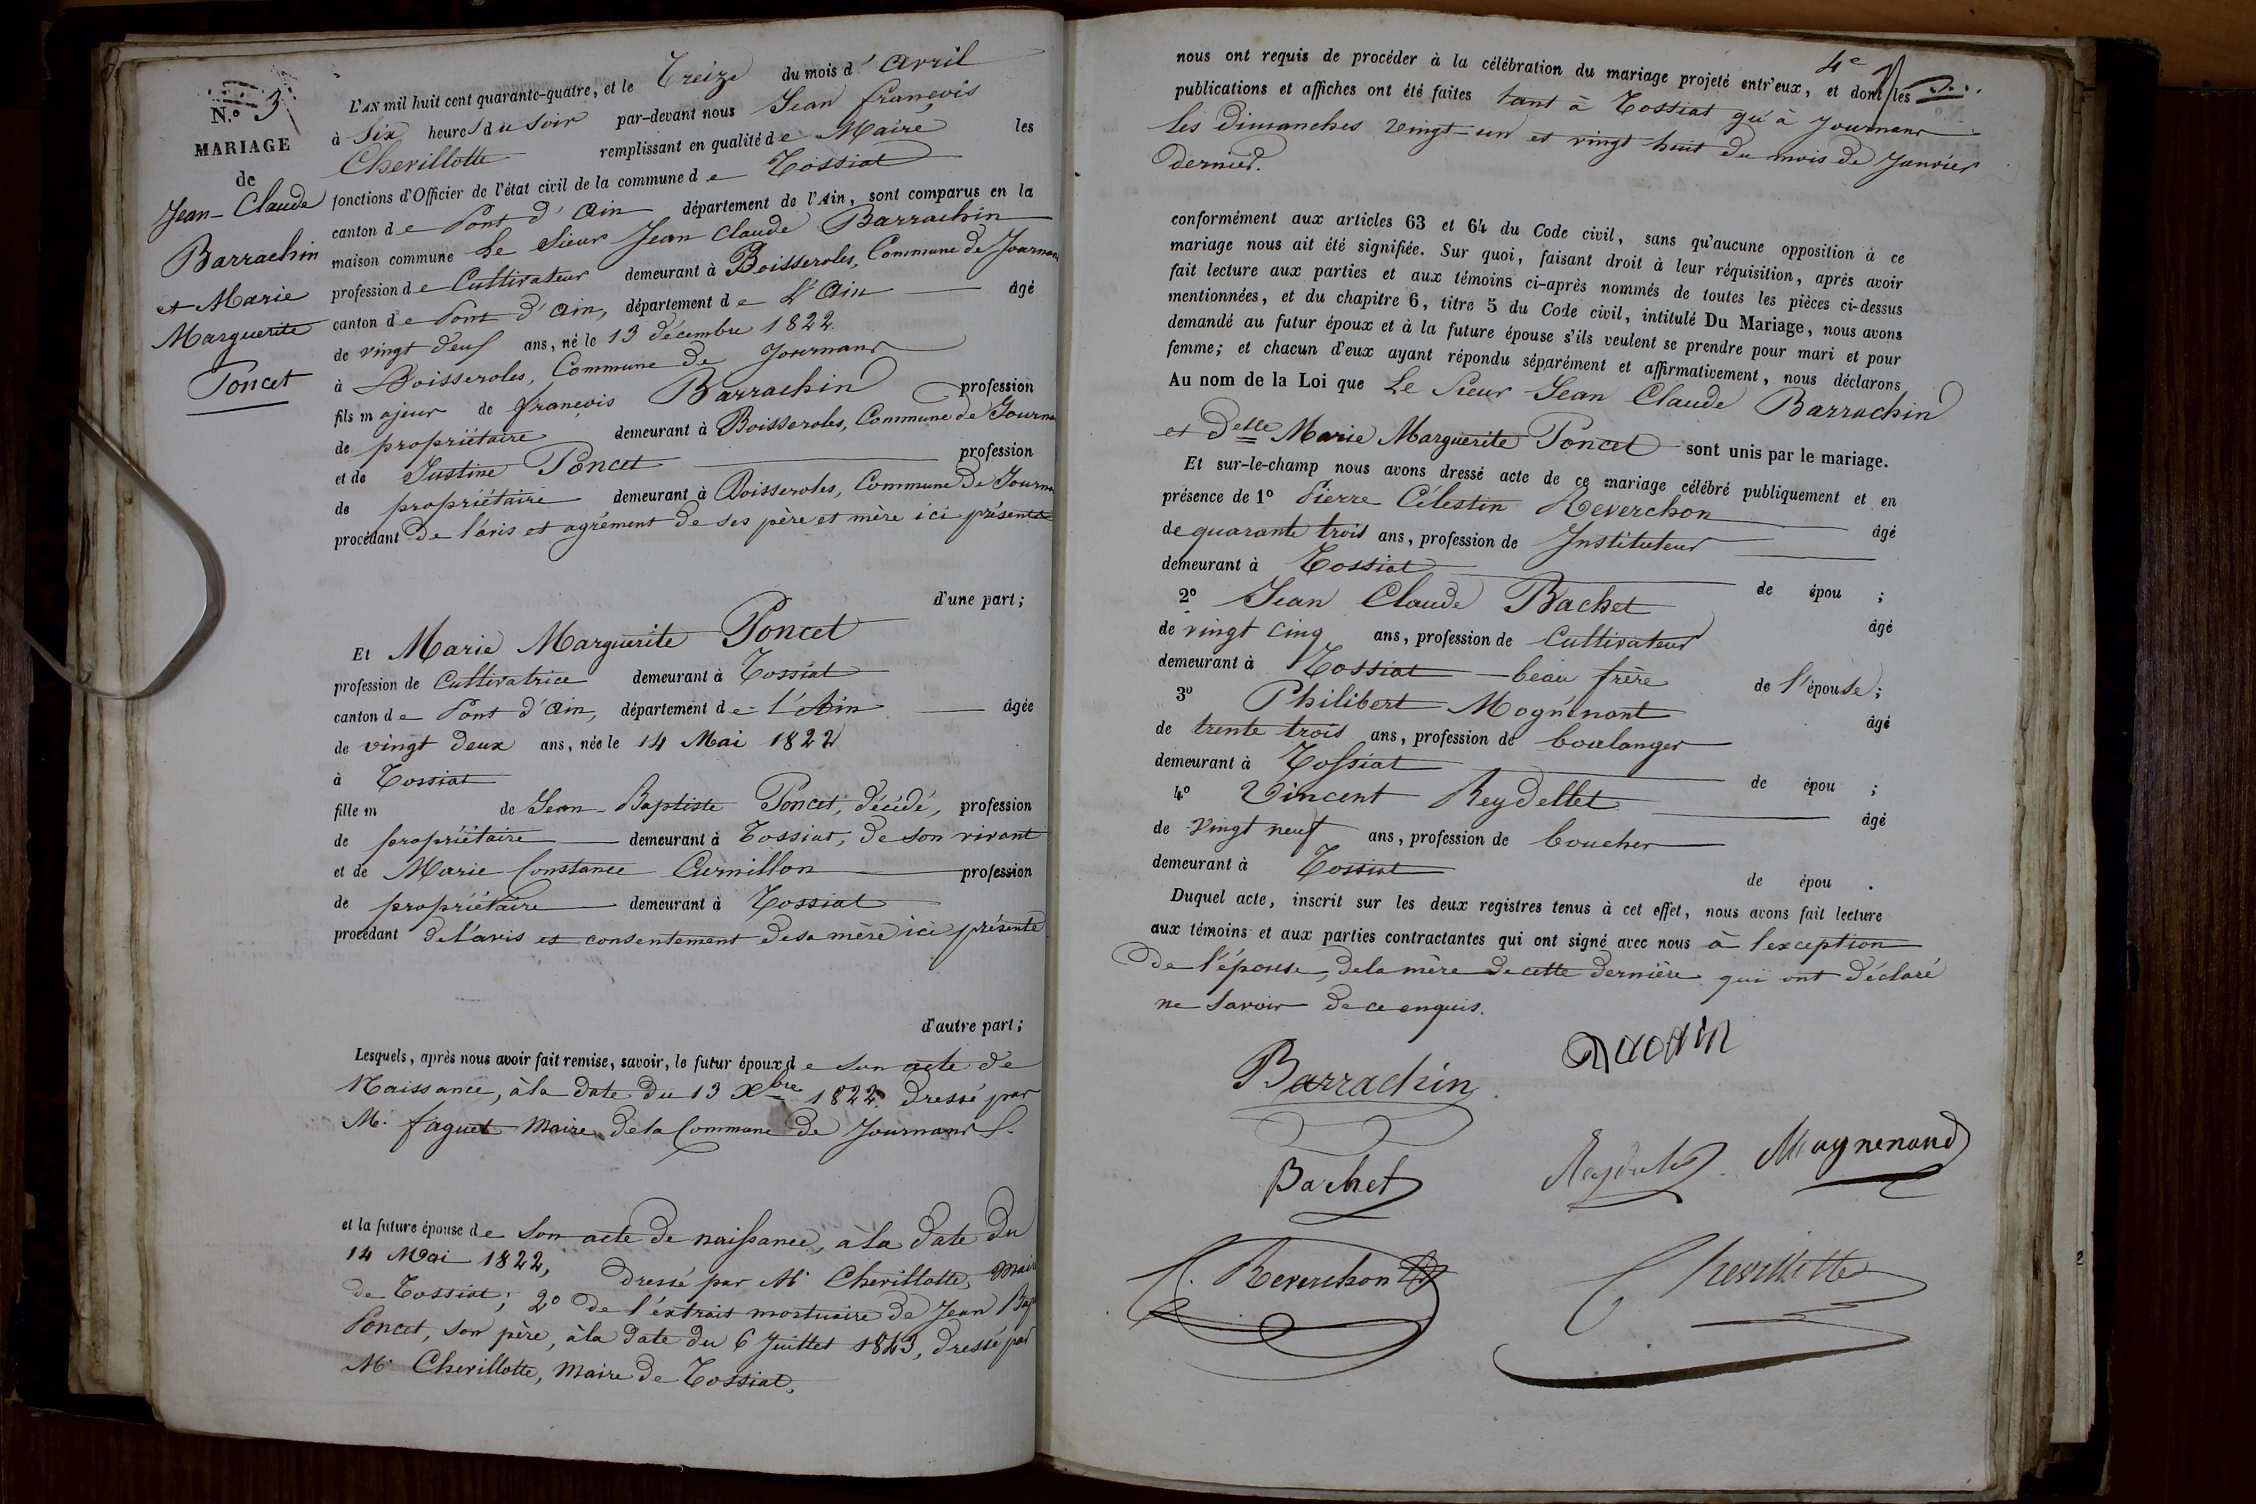 N.º 3
MARIAGE
de
Jean-Claude
Barrachin
et Marie
Marguerite
Poncet
L'AN mil huit cent quarante-quatre, et le Treize du mois d'Avril
à Six heures du Soir par-devant nous Jean françois
Chevillotte remplissant en qualité de Maire les
fonctions d'Officier de l'état civil de la commune de Tossiat
canton de Pont d'Ain département de l'Ain, sont comparus en la
maison commune Le Sieur Jean Claude Barrachin
profession de Cultivateur demeurant à Boisseroles, Commune de Journans
canton de Pont d'Ain, département de L'Ain âgé
de vingt deux ans, né le 13 décembre 1822
à Boisseroles, Commune de Journans
fils majeur de françois Barrachin profession
de propriétaire demeurant à Boisseroles, Commune de Journ
et de Justine Poncet profession
de propriétaire demeurant à Boisseroles, Commune de Journ
procédant de l'avis et agrément de ses père et mère ici présents
d'une part;
Et Marie Marguerite Poncet
profession de Cultivatrice demeurant à Tossiat
canton de Pont d'Ain, département de l'Ain âgée
de vingt deux ans, née le 14 Mai 1822
à Tossiat
fille m de Jean-Baptiste Poncet, décédé, profession
de propriétaire demeurant à Tossiat, de son vivant
et de Marie Constance Curnillon profession
de propriétaire demeurant à Tossiat
procédant de l'avis et consentement de sa mère ici présente
d'autre part;
Lesquels, après nous avoir fait remise, savoir, le futur époux de son acte de
Naissance, à la date du 13 Xbre 1822 dressé par
M. faguet Maire de la Commune de Journans
et la future épouse de son acte de naissance, à la date du
14 Mai 1822, dressé par Mr Chevillotte, Mair
de Tossiat; 2º de l'extrait mortuaire de Jean Bap
Poncet, son père, à la date du 6 Juillet 1843, dressé par
Mr Chevillotte, Maire de Tossiat.
4e
nous ont requis de procéder à la célébration du mariage projeté entr'eux, et dont les
publications et affiches ont été faites tant à Tossiat qu'à Journans
les dimanches vingt-un et vingt huit du mois de Janvier
dernier.
conformément aux articles 63 et 64 du Code civil, sans qu'aucune opposition à ce
mariage nous ait été signifiée. Sur quoi, faisant droit à leur réquisition, après avoir
fait lecture aux parties et aux témoins ci-après nommés de toutes les pièces ci-dessus
mentionnées, et du chapitre 6, titre 5 du Code civil, intitulé Du Mariage, nous avons
demandé au futur époux et à la future épouse s'ils veulent se prendre pour mari et pour
femme; et chacun d'eux ayant répondu séparément et affirmativement, nous déclarons
Au nom de la Loi que Le Sieur Jean Claude Barrachin
et Delle Marie Marguerite Poncet sont unis par le mariage.
Et sur-le-champ nous avons dressé acte de ce mariage célébré publiquement et en
présence de 1º Pierre Célestin Reverchon âgé
de quarante trois ans, profession de Instituteur
demeurant à Tossiat de épou ;
2º Jean Claude Bachet âgé
de vingt cinq ans, profession de Cultivateur
demeurant à Tossiat beau frère de l'épouse;
3º Philibert Mognenant âgé
de trente trois ans, profession de boulanger
demeurant à Tossiat de épou ;
4º Vincent Reydellet âgé
de vingt neuf ans, profession de boucher
demeurant à Tossiat de épou .
Duquel acte, inscrit sur les deux registres tenus à cet effet, nous avons fait lecture
aux témoins et aux parties contractantes qui ont signé avec nous à l'exception
de l'épouse, de la mère de cette dernière qui ont déclaré
ne savoir de ce enquis.
Barrachin
Bachet
Reydellet
Magnenand
C. Reverchon
Chevillotte
2